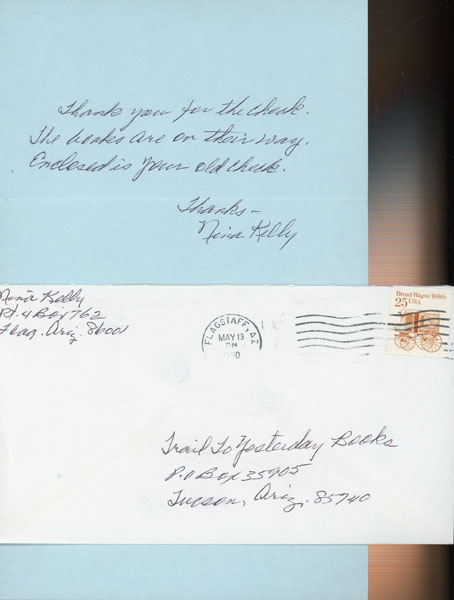 Thank you for the check.
The books are on their way.
Enclosed is your old check.
Thanks-
Nina Kelly
Nina Kelly
Rt. 4 Box 762
Flag. Ariz. 86001
FLAGSTAFF, AZ
MAY 13
PM
1990
Bread Wagon 1880s
25 USA
Trail To Yesterday Books
P.O Box 35905
Tucson, Ariz. 85740